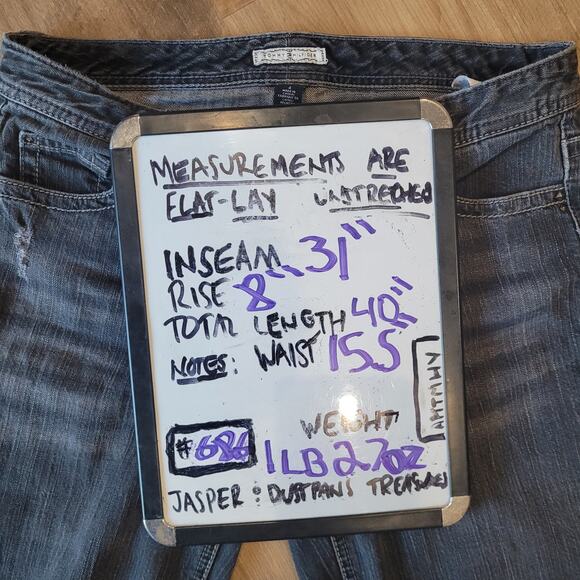 TOMMY HILFIGER
MEASUREMENTS ARE
FLAT-LAY UNSTRECHED
INSEAM 31"
RISE 8"
TOTAL LENGTH 40"
NOTES: WAIST 15.5"
AMTMHY
WEIGHT
#686 1LB 2.7oz
JASPER & DUSTPANS TREASURES